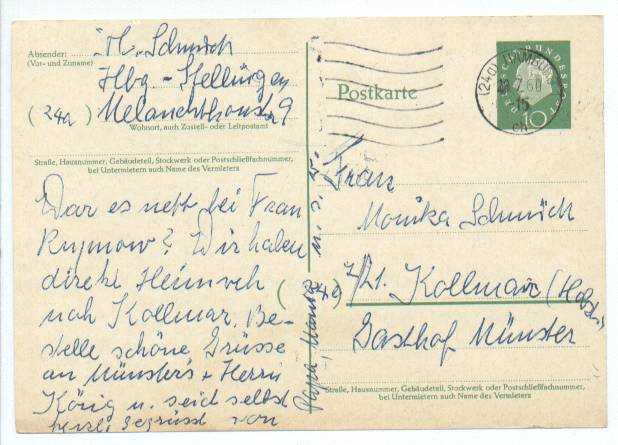 Absender: M. Schmich
(Vor- und Zuname)
Hbg - Stellingen
(24a) Melanchthonstr 9
Wohnort, auch Zustell- oder Leitpostamt
Straße, Hausnummer, Gebäudeteil, Stockwerk oder Postschließfachnummer,
bei Untermietern auch Name des Vermieters
War es nett bei Frau
Rujmow? Wir haben
direkt Heimweh
nach Kollmar. Be-
stelle schöne Grüsse
an Münster's + Herrn
König u. seid selbst
herzl. gegrüsst von
Papa, Mami
Postkarte
10
Frau
Monika Schmich
Kollmar (Holst.)
Gasthof Münster
Straße, Hausnummer, Gebäudeteil, Stockwerk oder Postschließfachnummer,
bei Untermietern auch Name des Vermieters